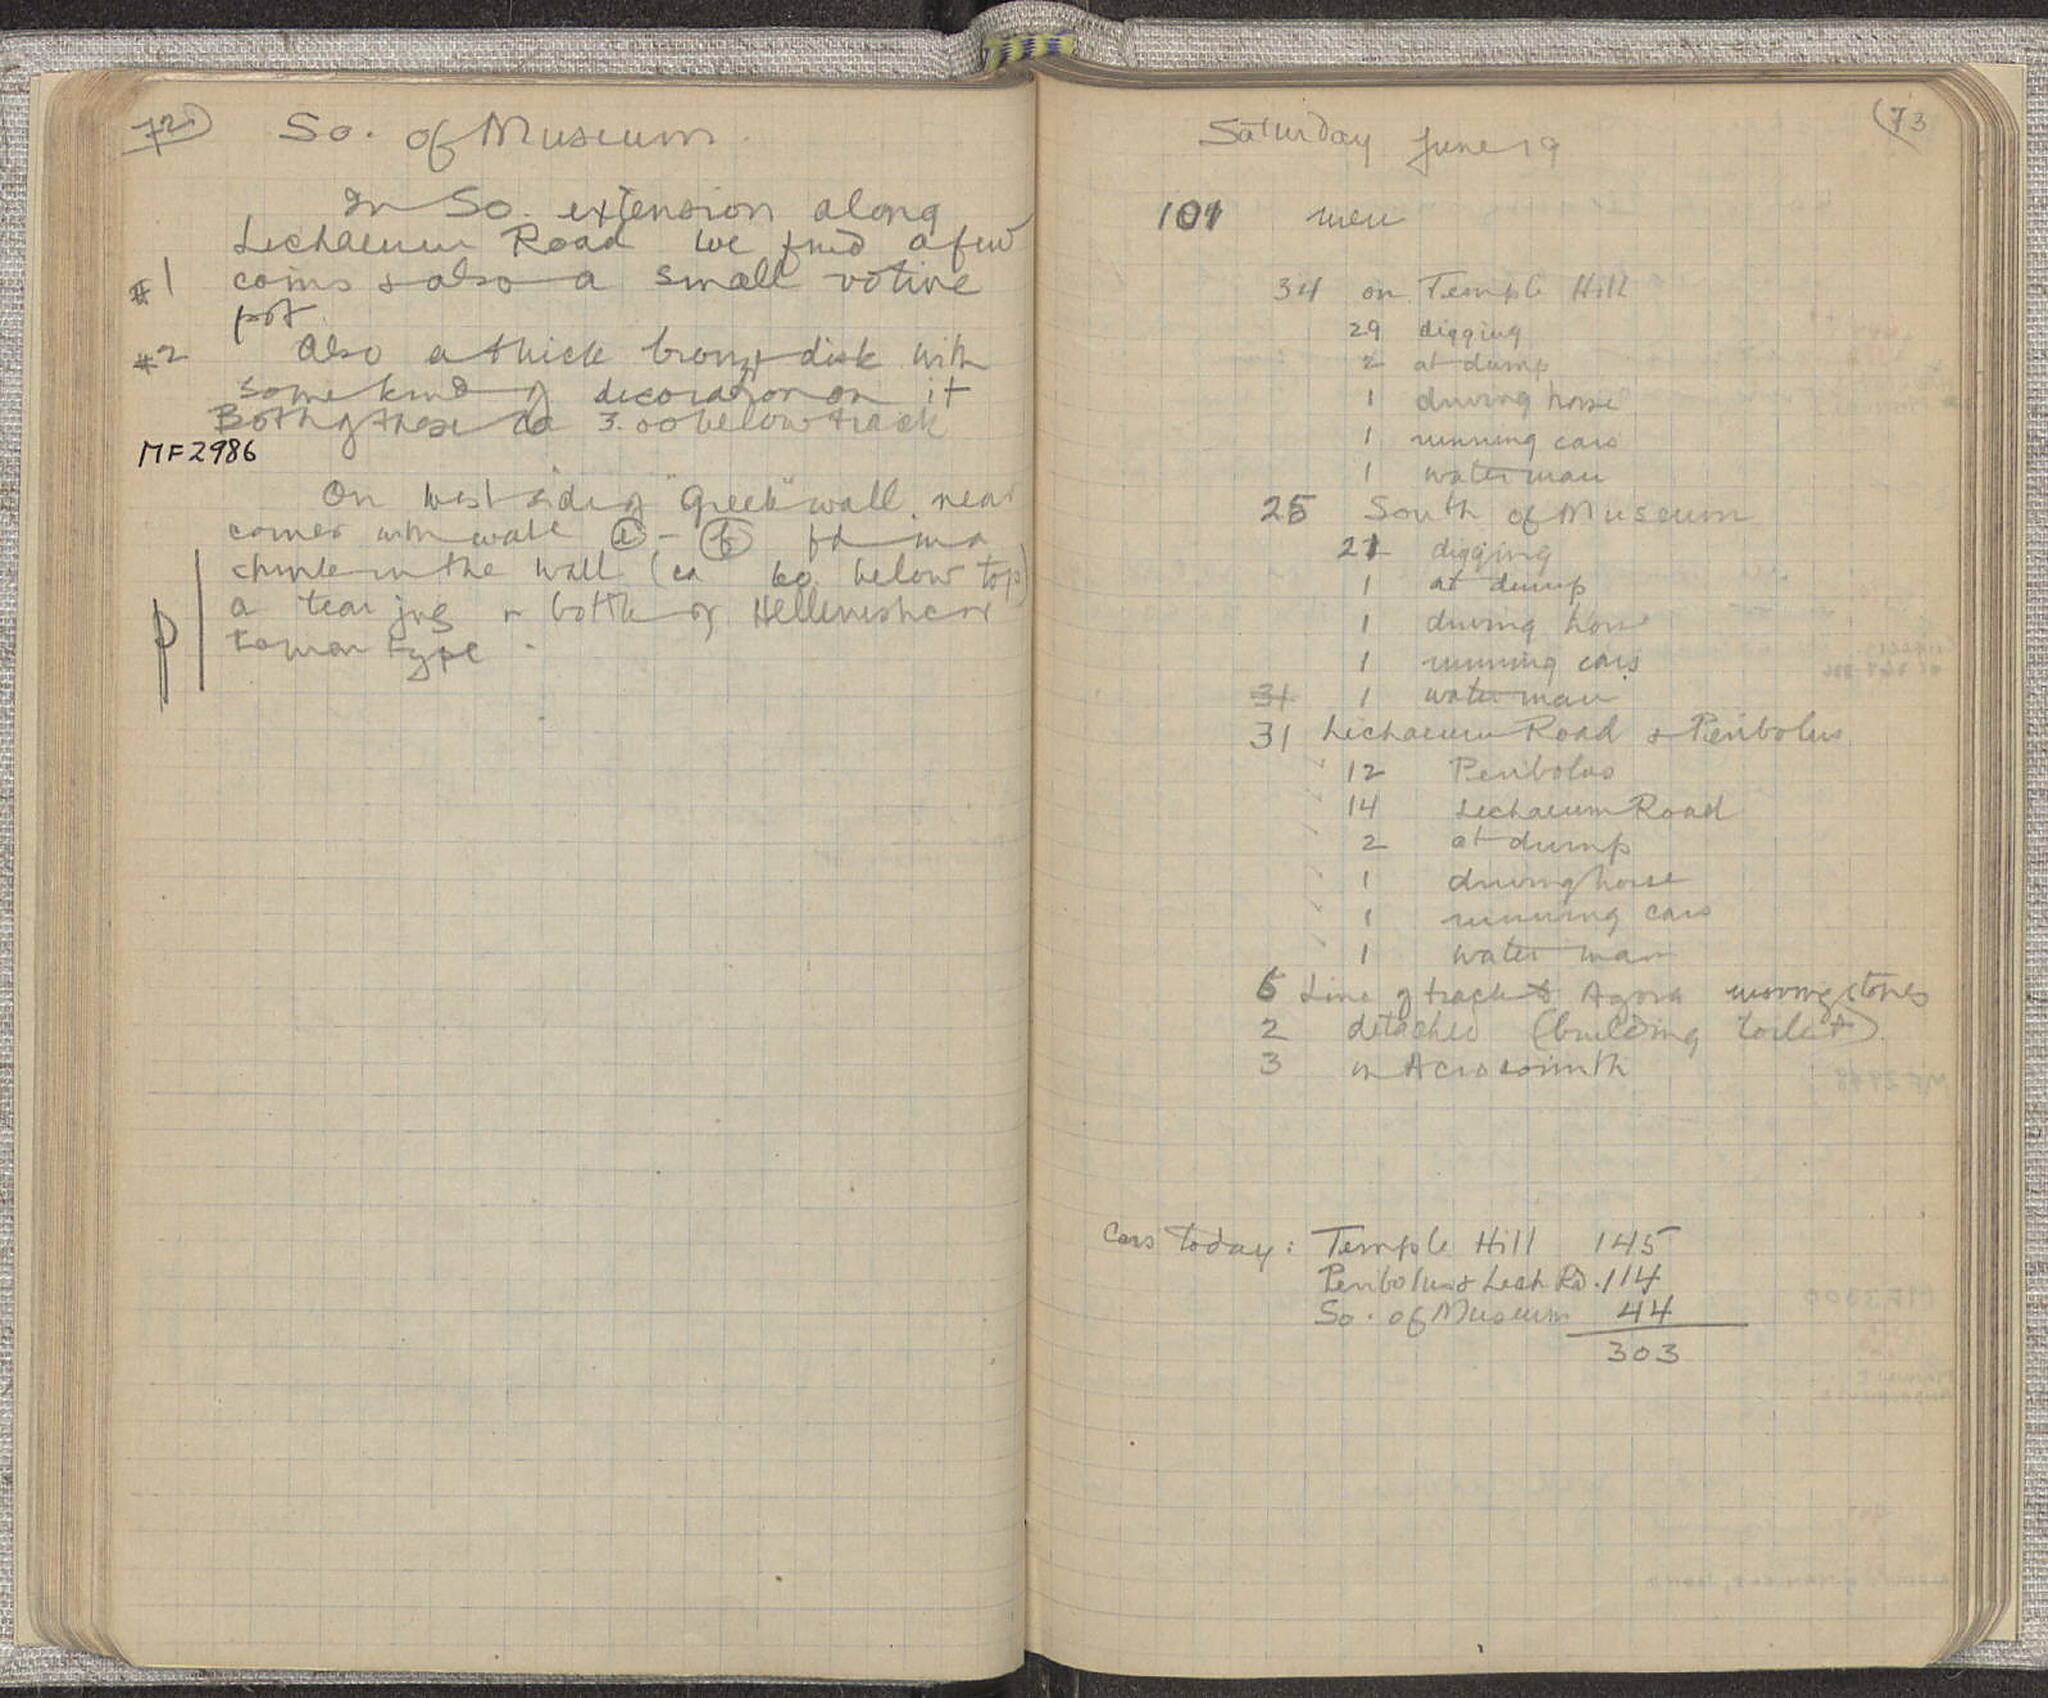 72
So. of Museum.
In So. extension along
Lechaeum Road we find a few
#1 coins & also a small votive
pot.
#2 Also a thick bronze disk with
some kind of decoration on it
Both of these ca 3.00 below track
MF2986
On west side of "Greek" wall, near
corner with wall a - b fd in a
chink in the wall (ca 60 below top)
a tear jug or bottle of Hellenistic or
P roman type.
73
Saturday June 19
101 men
34 on Temple Hill
29 digging
2 at dump
1 driving horse
1 running cars
1 water man
25 South of Museum
21 digging
1 at dump
1 driving horse
1 running cars
31 1 water man
31 Lechaeum Road & Peribolus
12 Peribolus
14 Lechaeum Road
2 at dump
1 driving horse
1 running cars
1 water man
6 Line of track to Agora moving stones
2 detached (building toilet).
3 on Acrocorinth
Cars today: Temple Hill 145
Peribolus & Lech Rd. 114
So. of Museum 44
303